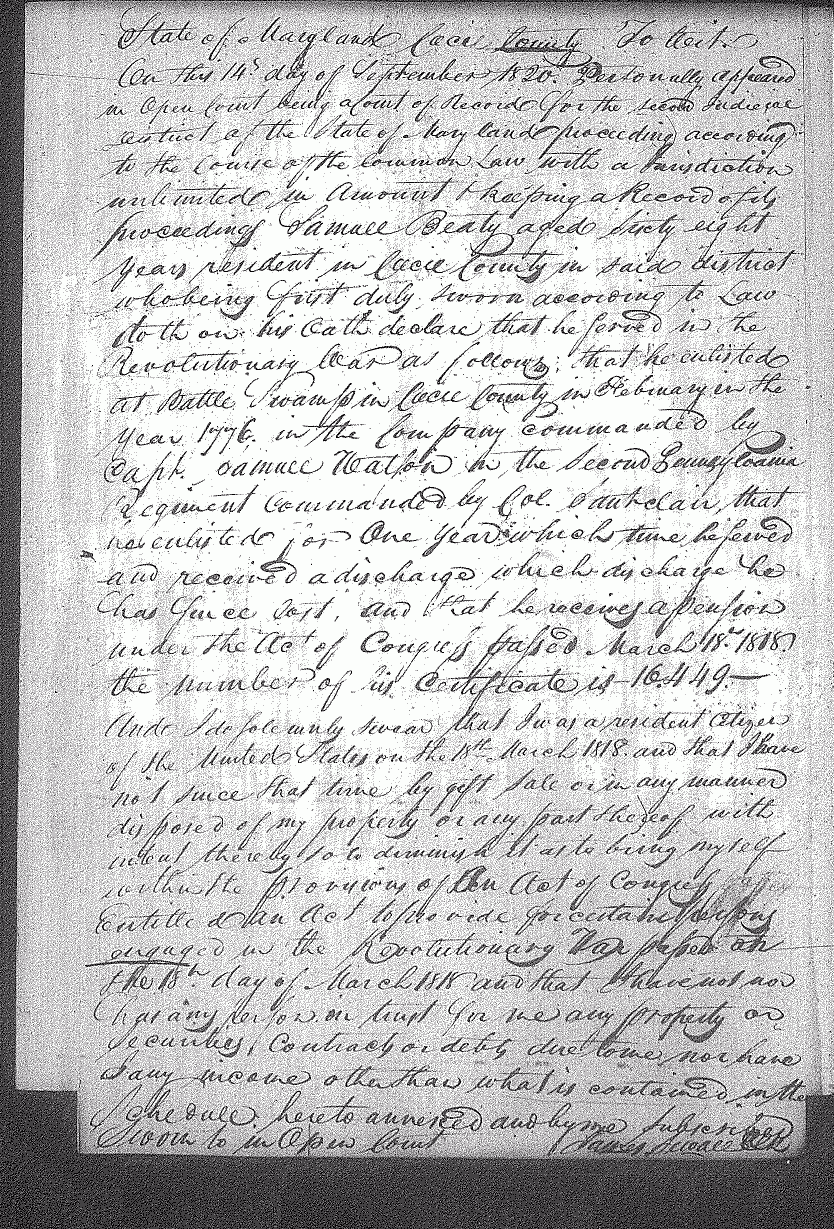 State of Maryland Cecil County To Wit.
On this 14th day of September 1820. Personally appeared
in Open Court being a Court of Record for the second Judicial
district of the State of Maryland proceeding according
to the Course of the Common Law with a Jurisdiction
unlimited in Amount & keeping a Record of its
proceedings Samuel Beaty aged sixty eight
years resident in Cecil County in said district
who being first duly sworn according to Law
doth on his Oath declare that he served in the
Revolutionary War as follows; that he enlisted
at Battle Swamp in Cecil County in February in the
year 1776. in the Company commanded by
Capt. Samuel Watson in the second Pennsylvania
Regiment Commanded by Col. Saintclair, that
he enlisted for One year which time he served
and received a discharge which discharge he
has since lost, and that he receives a pension
under the Act of Congress passed March 18th 1818.
the number of his Certificate is 16.449—
And I do solemnly swear that I was a resident Citizen
of the United States on the 18th March 1818. and that I have
not since that time by gift sale or in any manner
disposed of my property or any part thereof with
intent thereby so to diminish it as to bring myself
within the provisions of An Act of Congress
Entitled an Act to provide for certain persons
engaged in the Revolutionary War passed on
the 18th day of March 1818 and that I have not nor
has any person in trust for me any property or
Securities, Contracts or debts due to me nor have
I any income other than what is contained in the
Schedule hereto annexed and by me Subscribed
Sworn to in Open Court James Sewall Clk